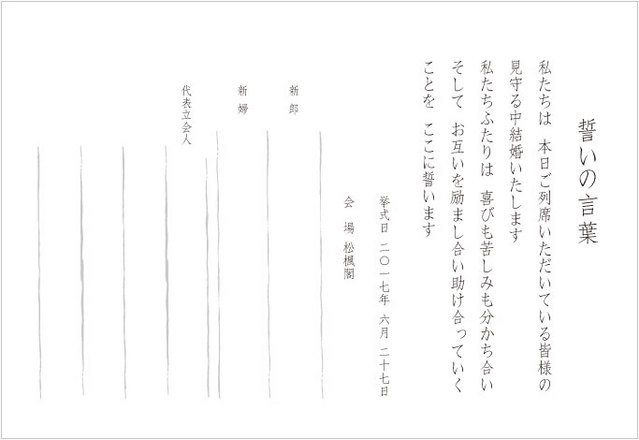 誓いの言葉
私たちは 本日ご列席いただいている皆様の
見守る中結婚いたします
私たちふたりは 喜びも苦しみも分かち合い
そして お互いを励まし合い助け合っていく
ことを ここに誓います
挙式日 二〇一七年 六月 二十七日
会 場 松楓閣
新郎
新婦
代表立会人